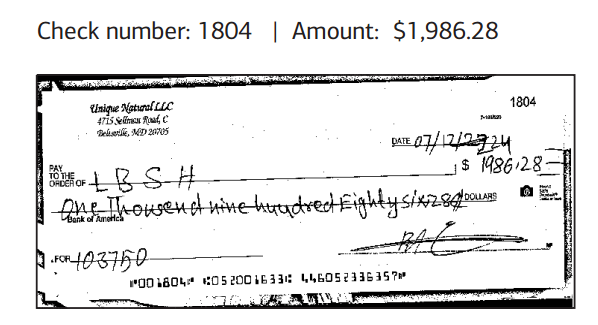 Check number: 1804 | Amount: $1,986.28
Unique Natural LLC
1804
4715 Sellman Road, C
Beltsville, MD 20705
DATE 07/12/2024
PAY
TO THE
ORDER OF LBSH
$ 1986.28
One Thousend nine hundred Eighty six 280 DOLLARS
Bank of America
FOR 103750
⑈001804⑈ ⑆052001633⑆ 446052336357⑈